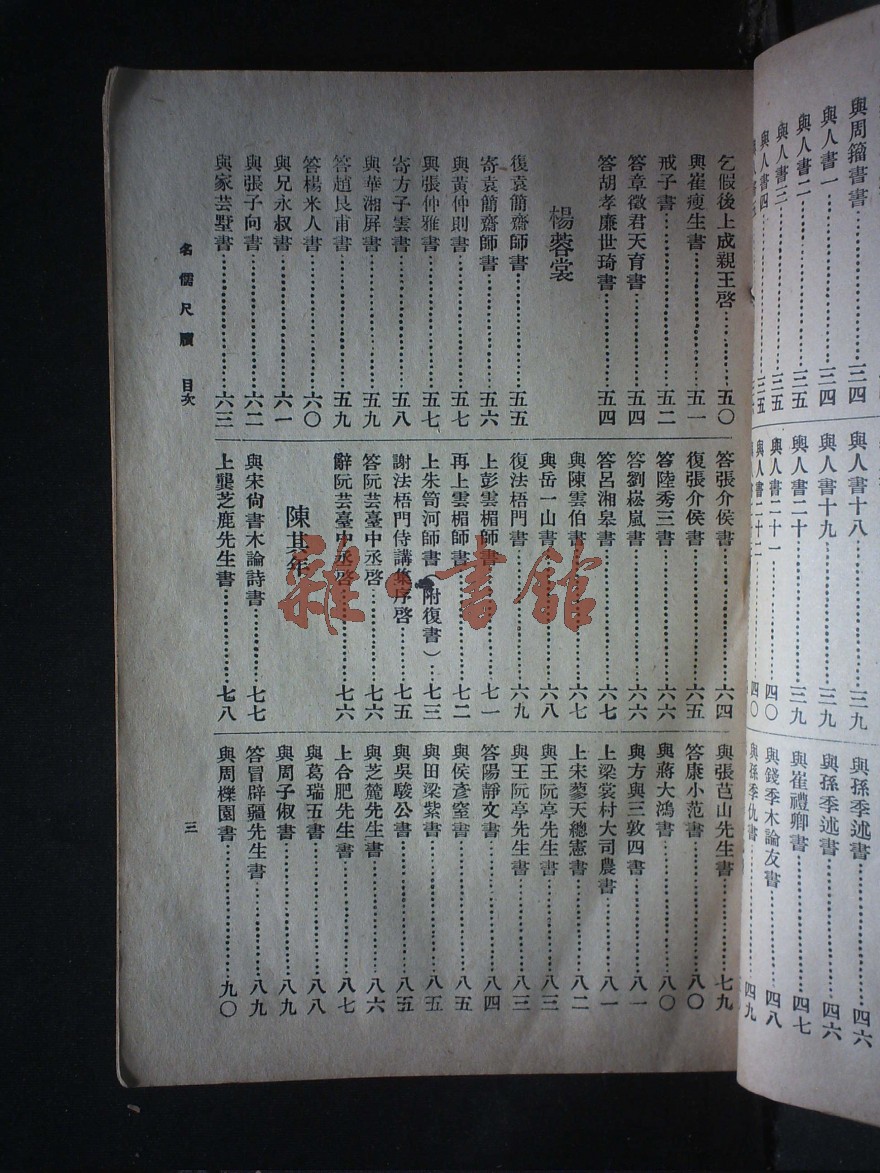 與周籀書書……三四
與人書一……三四
與人書二……三五
與人書三……三五
與人書四……三五
與人書十八……三九
與人書十九……三九
與人書二十……三九
與人書二十一……四〇
與人書二十二……四〇
與孫季述書……四六
與孫季述書……四六
與崔禮卿書……四七
與錢季木論友書……四八
與孫季仇書……四九
乞假後上成親王啓……五〇
與崔瘦生書……五一
戒子書……五二
答章徵君天育書……五四
答胡孝廉世琦書……五四
楊蓉裳
復袁簡齋師書……五五
寄袁簡齋師書……五六
與黃仲則書……五七
與張仲雅書……五七
寄方子雲書……五八
與華湘屏書……五九
答趙艮甫書……五九
答楊米人書……六〇
與兄永叔書……六一
與張子向書……六二
與家芸墅書……六三
答張介侯書……六四
復張介侯書……六五
答陸秀三書……六六
答劉崧嵐書……六六
答呂湘皋書……六七
與陳雲伯書……六七
與岳一山書……六八
復法梧門書……六九
上彭雲楣師書……七一
再上雲楣師書……七二
上朱笥河師書(附復書)……七三
謝法梧門侍講集序啓……七五
答阮芸臺中丞啓……七六
辭阮芸臺中丞啓……七六
陳其年
與宋尙書木論詩書……七七
上龔芝鹿先生書……七八
與張芑山先生書……七九
答康小范書……八〇
與蔣大鴻書……八〇
與方與三敦四書……八一
上梁裳村大司農書……八一
上宋蓼天總憲書……八二
與王阮亭先生書……八三
與王阮亭先生書……八三
答陽靜文書……八四
與侯彥窒書……八五
與田梁紫書……八五
與吳駿公書……八五
與芝麓先生書……八六
上合肥先生書……八七
與葛瑞五書……八八
與周子俶書……八九
答冒辟疆先生書……八九
與周櫟園書……九〇
名儒尺牘 目次
三
雜·書館